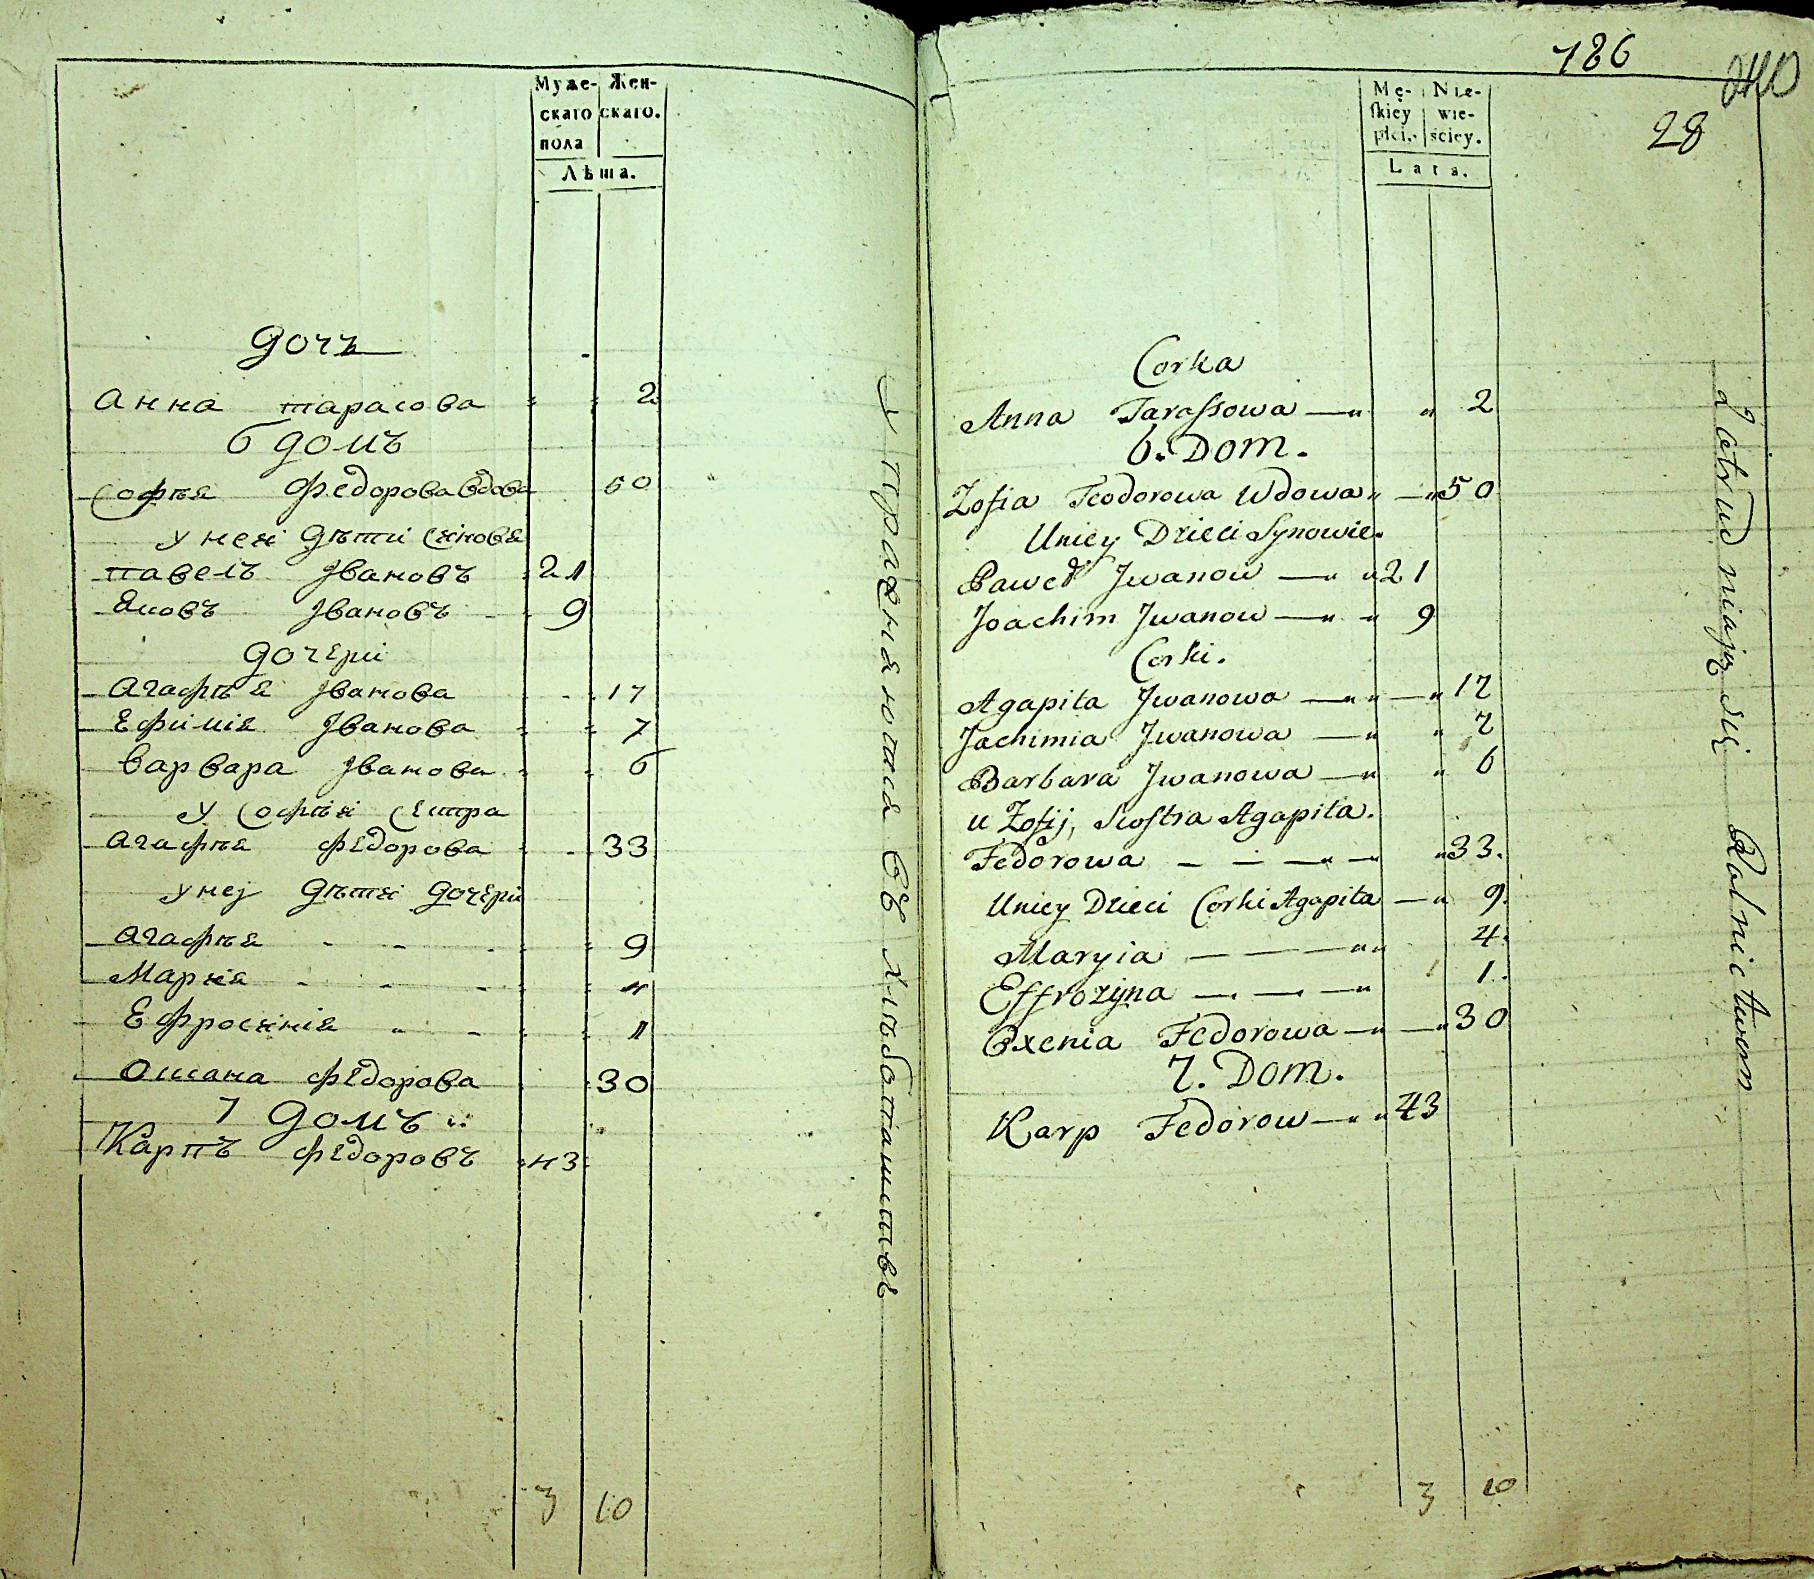 Муже- Жен-
скаго скаго.
пола
Лѣта.
дочъ
Анна тарасова 2
6 домъ
Софья Федорова вдова 50
у неи дѣти синовя
павелъ Ивановъ 21
Яковъ Ивановъ 9
дочери
Агафья Иванова 17
Ефимия Иванова 7
варвара Иванова 6
у Софьи сестра
Агафья Федорова 33
у неј дѣти дочери
Агафья 9
Мария 4
Ефросиния 1
Оксана Федорова 30
7 домъ
Карпъ Федоровъ 43
3 10
Упражняются въ хлѣбопашествѣ
186
28
Mę- Nie-
skiey wie-
płci. ściey.
Lata.
Corka
Anna Tarassowa 2
6. Dom.
Zofia Teodorowa Wdowa 50
Uniey Dzieci Synowie.
Paweł Jwanow 21
Joachim Jwanow 9
Corki.
Agapita Jwanowa 17
Jachimia Jwanowa 7
Barbara Jwanowa 6
u Zofij, Siostra Agapita.
Fedorowa 33.
Uniey Dzieci Corki Agapita 9.
Maryia 4.
Effrozyna 1.
Exenia Fedorowa 30
7. Dom.
Karp Fedorow 43
3 10
Zatrudniaią się Rolnictwem